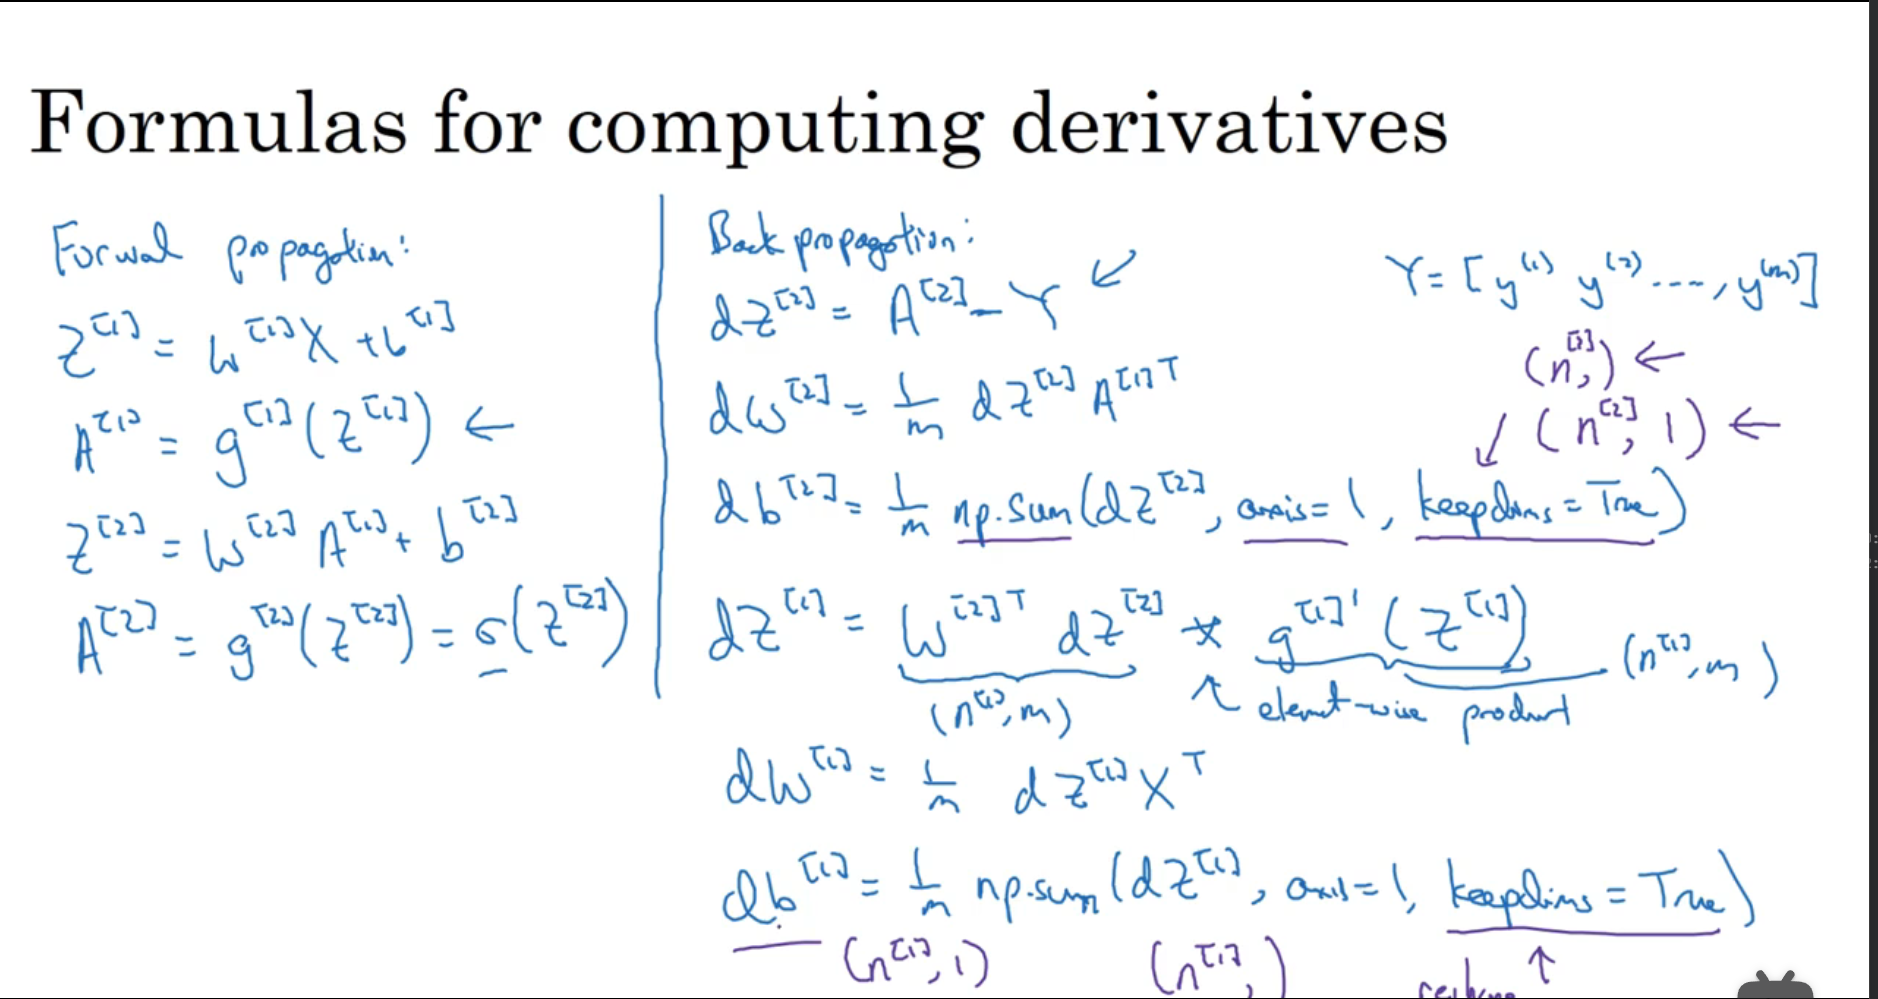 Formulas for computing derivatives
Forward propagation:
Z^[1] = W^[1] X + b^[1]
A^[1] = g^[1](Z^[1]) ←
Z^[2] = W^[2] A^[1] + b^[2]
A^[2] = g^[2](Z^[2]) = σ(Z^[2])
Back propagation:
dZ^[2] = A^[2] - Y ↙
Y = [y^(1) y^(2) ...., y^(m)]
dW^[2] = 1/m dZ^[2] A^[1]T
(n^[2],) ←
↙ (n^[2], 1) ←
db^[2] = 1/m np.sum(dZ^[2], axis=1, keepdims=True)
dZ^[1] = W^[2]T dZ^[2] * g^[1]'(Z^[1])
(n^[1], m) ↑ element-wise product (n^[1], m)
dW^[1] = 1/m dZ^[1] X^T
db^[1] = 1/m np.sum(dZ^[1], axis=1, keepdims=True)
(n^[1], 1) (n^[1],) ↑